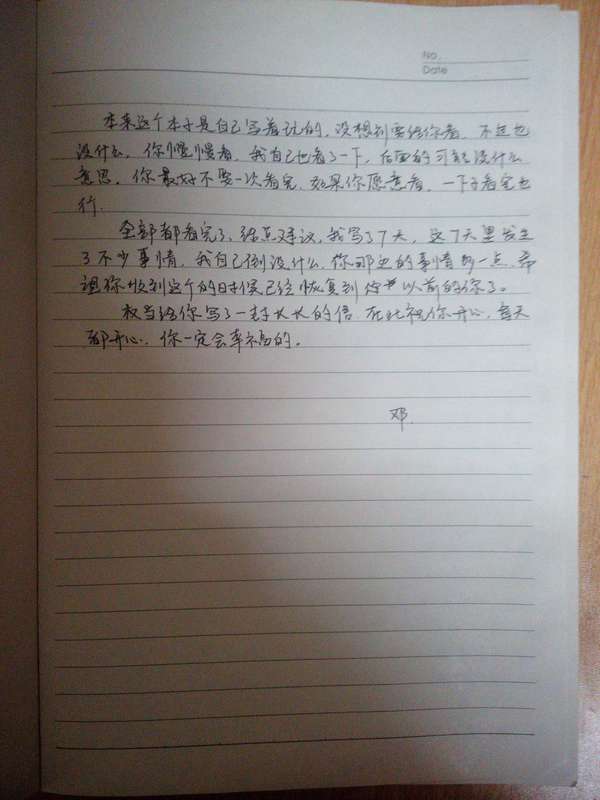 No.
Date
本来这个本子是自己写着玩的，没想到要给你看，不过也
没什么，你慢慢看，我自己也看了一下，后面的可能没什么
意思，你最好不要一次看完，如果你愿意看，一下子看完也
行。
全部都看完了，给点建议，我写了7天，这7天里发生
了不少事情，我自己倒没什么，你那边的事情多一点，希
望你收到这个的时候已经恢复到以前的你了。
权当给你写了一封长长的信，在此祝你开心，每天
都开心，你一定会幸福的。
邓.